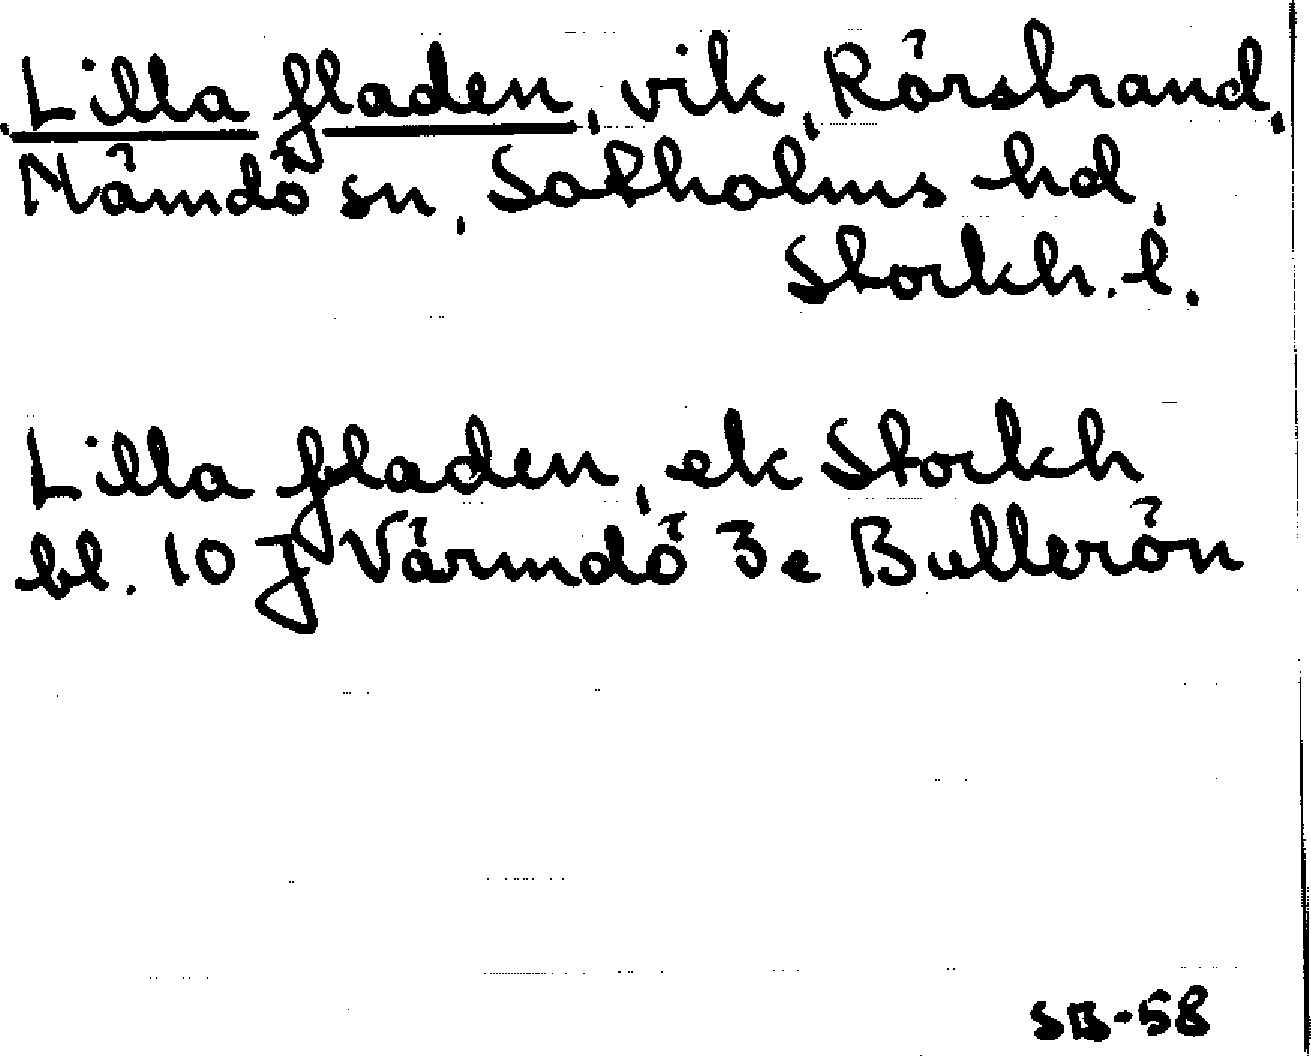 Lilla fladen, vik, Rörstrand,
Nämdö sn, Sotholms hd,
Stockh. l.
Lilla fladen, ek Stockh
bl. 10 J Värmdö 3e Bullerön
SB-58